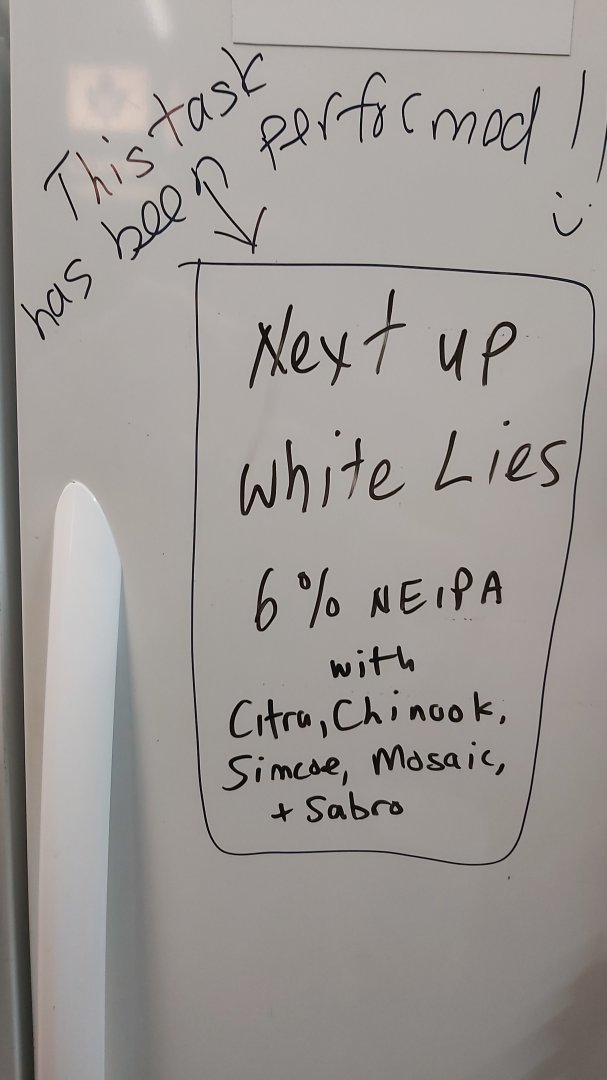 This task
has been performed!!
Next up
White Lies
6% NEIPA
with
Citra, Chinook,
Simcoe, Mosaic,
+ Sabro